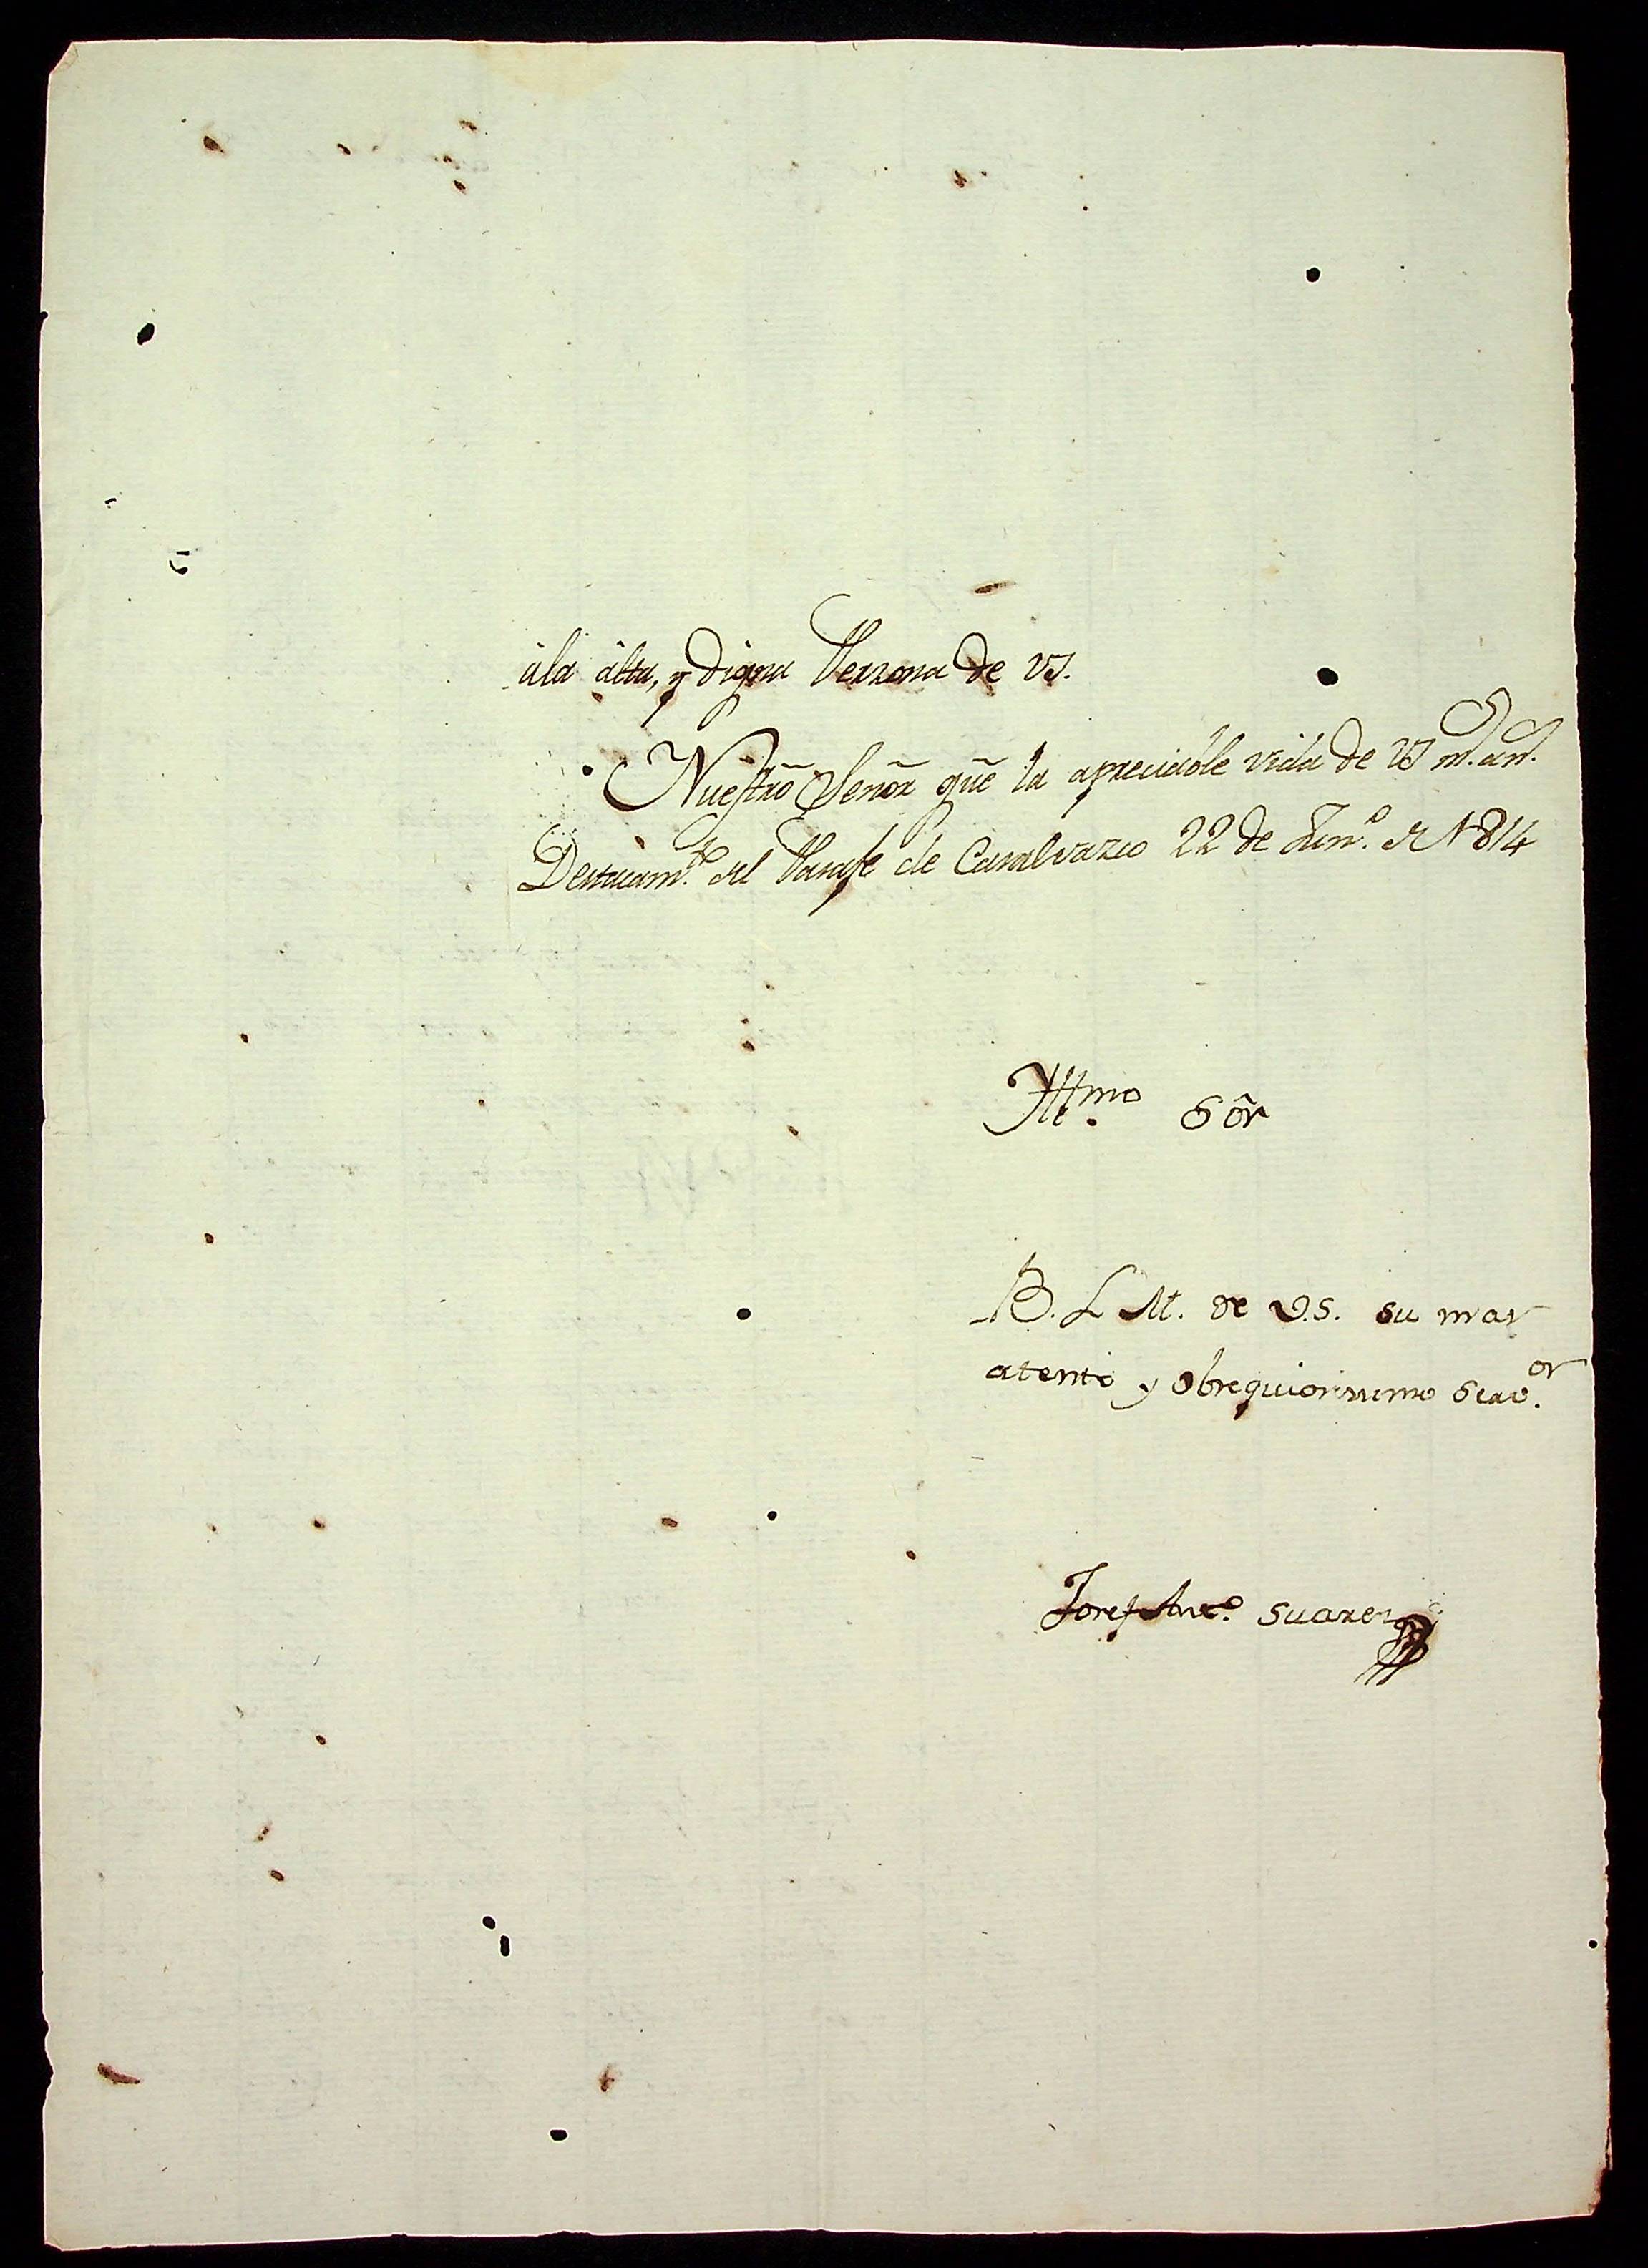 àla àlta, y digna Perzona de VS.
Nuestrõ Señor gũe la apreciable vida de VS m.s an.s
Destacam.to del Parafe de Camalvazco 22 de Jun.o de 1814
Ill.mo Sõr
B. L M. de V.S. su mas
atento y obsequiosissimo Serv.or
Josef Anto. Suarez